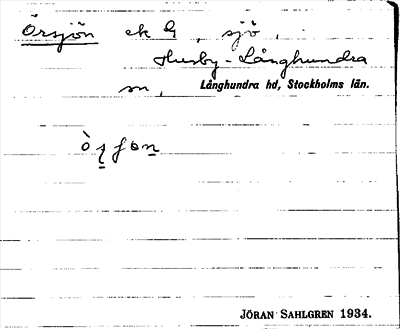 Örsjön ek G, sjö,
Husby-Långhundra
sn, Långhundra hd, Stockholms län.
JÖRAN SAHLGREN 1934.